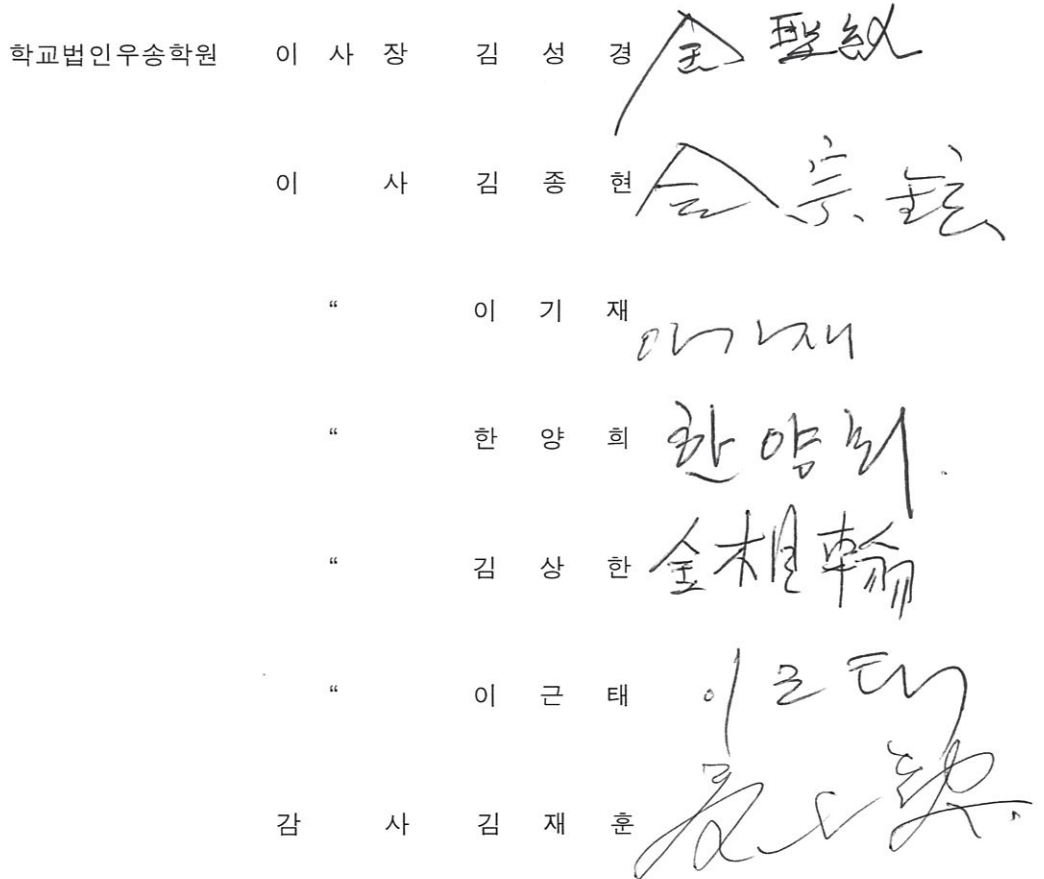 학교법인우송학원 이 사 장 김 성 경 金 聖 絅
이 사 김 종 현 金 宗 鉉
“ 이 기 재 이기재
“ 한 양 희 한양희
“ 김 상 한 金相翰
“ 이 근 태 이근태
감 사 김 재 훈